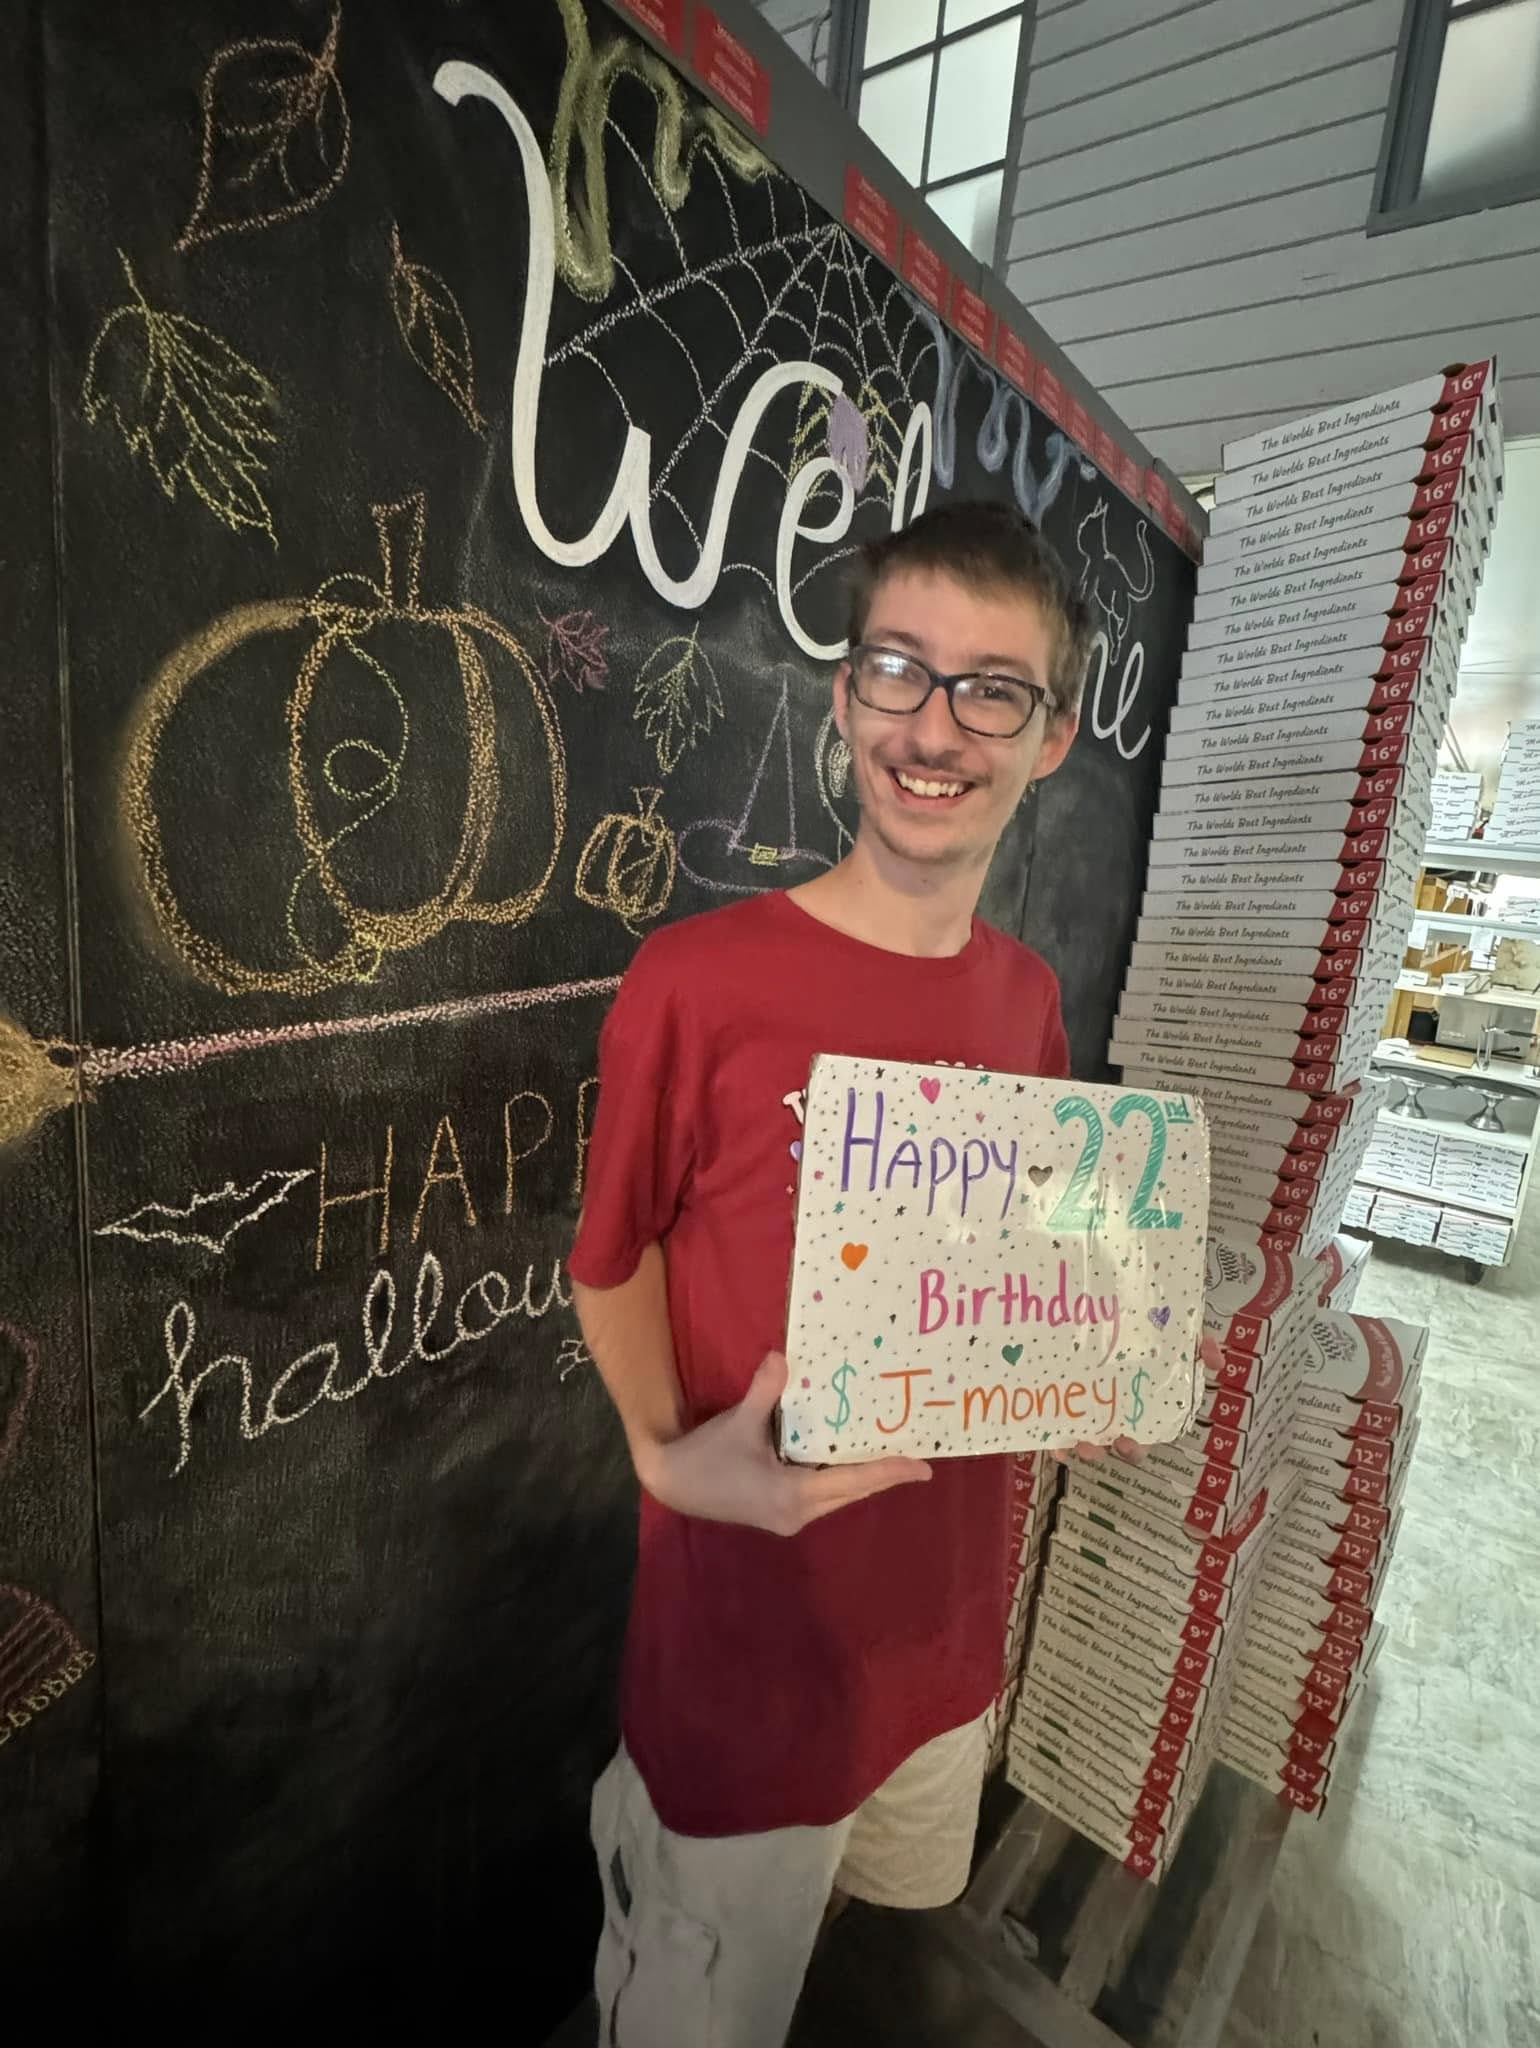 Welcome
HAPP
hallow
Happy 22nd
Birthday
$ J-money $
The Worlds Best Ingredients 16"
The Worlds Best Ingredients 16"
The Worlds Best Ingredients 16"
The Worlds Best Ingredients 16"
The Worlds Best Ingredients 16"
The Worlds Best Ingredients 16"
The Worlds Best Ingredients 16"
The Worlds Best Ingredients 16"
The Worlds Best Ingredients 16"
The Worlds Best Ingredients 16"
The Worlds Best Ingredients 16"
The Worlds Best Ingredients 16"
The Worlds Best Ingredients 16"
The Worlds Best Ingredients 16"
The Worlds Best Ingredients 16"
The Worlds Best Ingredients 16"
The Worlds Best Ingredients 16"
The Worlds Best Ingredients 16"
The Worlds Best Ingredients 16"
The Worlds Best Ingredients 16"
The Worlds Best Ingredients 16"
The Worlds Best Ingredients 16"
The Worlds Best Ingredients 16"
16"
16"
16"
16"
16"
9"
9"
9"
9"
The Worlds Best Ingredients 9"
The Worlds Best Ingredients 9"
The Worlds Best Ingredients 9"
The Worlds Best Ingredients 9"
The Worlds Best Ingredients 9"
The Worlds Best Ingredients 9"
The Worlds Best Ingredients 9"
The Worlds Best Ingredients 9"
The Worlds Best Ingredients 9"
The Worlds Best Ingredients 9"
The Worlds Best Ingredients 9"
redients 12"
redients 12"
redients 12"
12"
12"
12"
12"
12"
12"
12"
12"
12"
12"